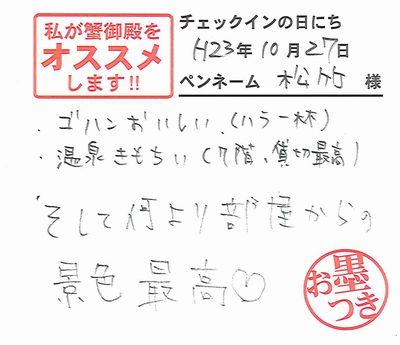 私が蟹御殿を
オススメ
します!!
チェックインの日にち
H23年10月27日
ペンネーム 松竹 様
・ゴハンおいしい、(ハラ一杯)
・温泉きもちい(7階、貸切最高)
・そして何より部屋からの
景色最高♡
お墨つき